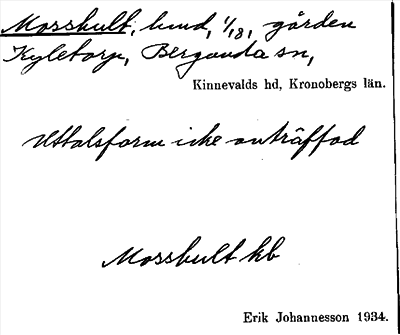 Mosshult, hmd, 1/18, gården
Kyletorp, Bergunda sn,
Kinnevalds hd, Kronobergs län.
Uttalsform icke anträffad
Mosshult kb
Erik Johannesson 1934.